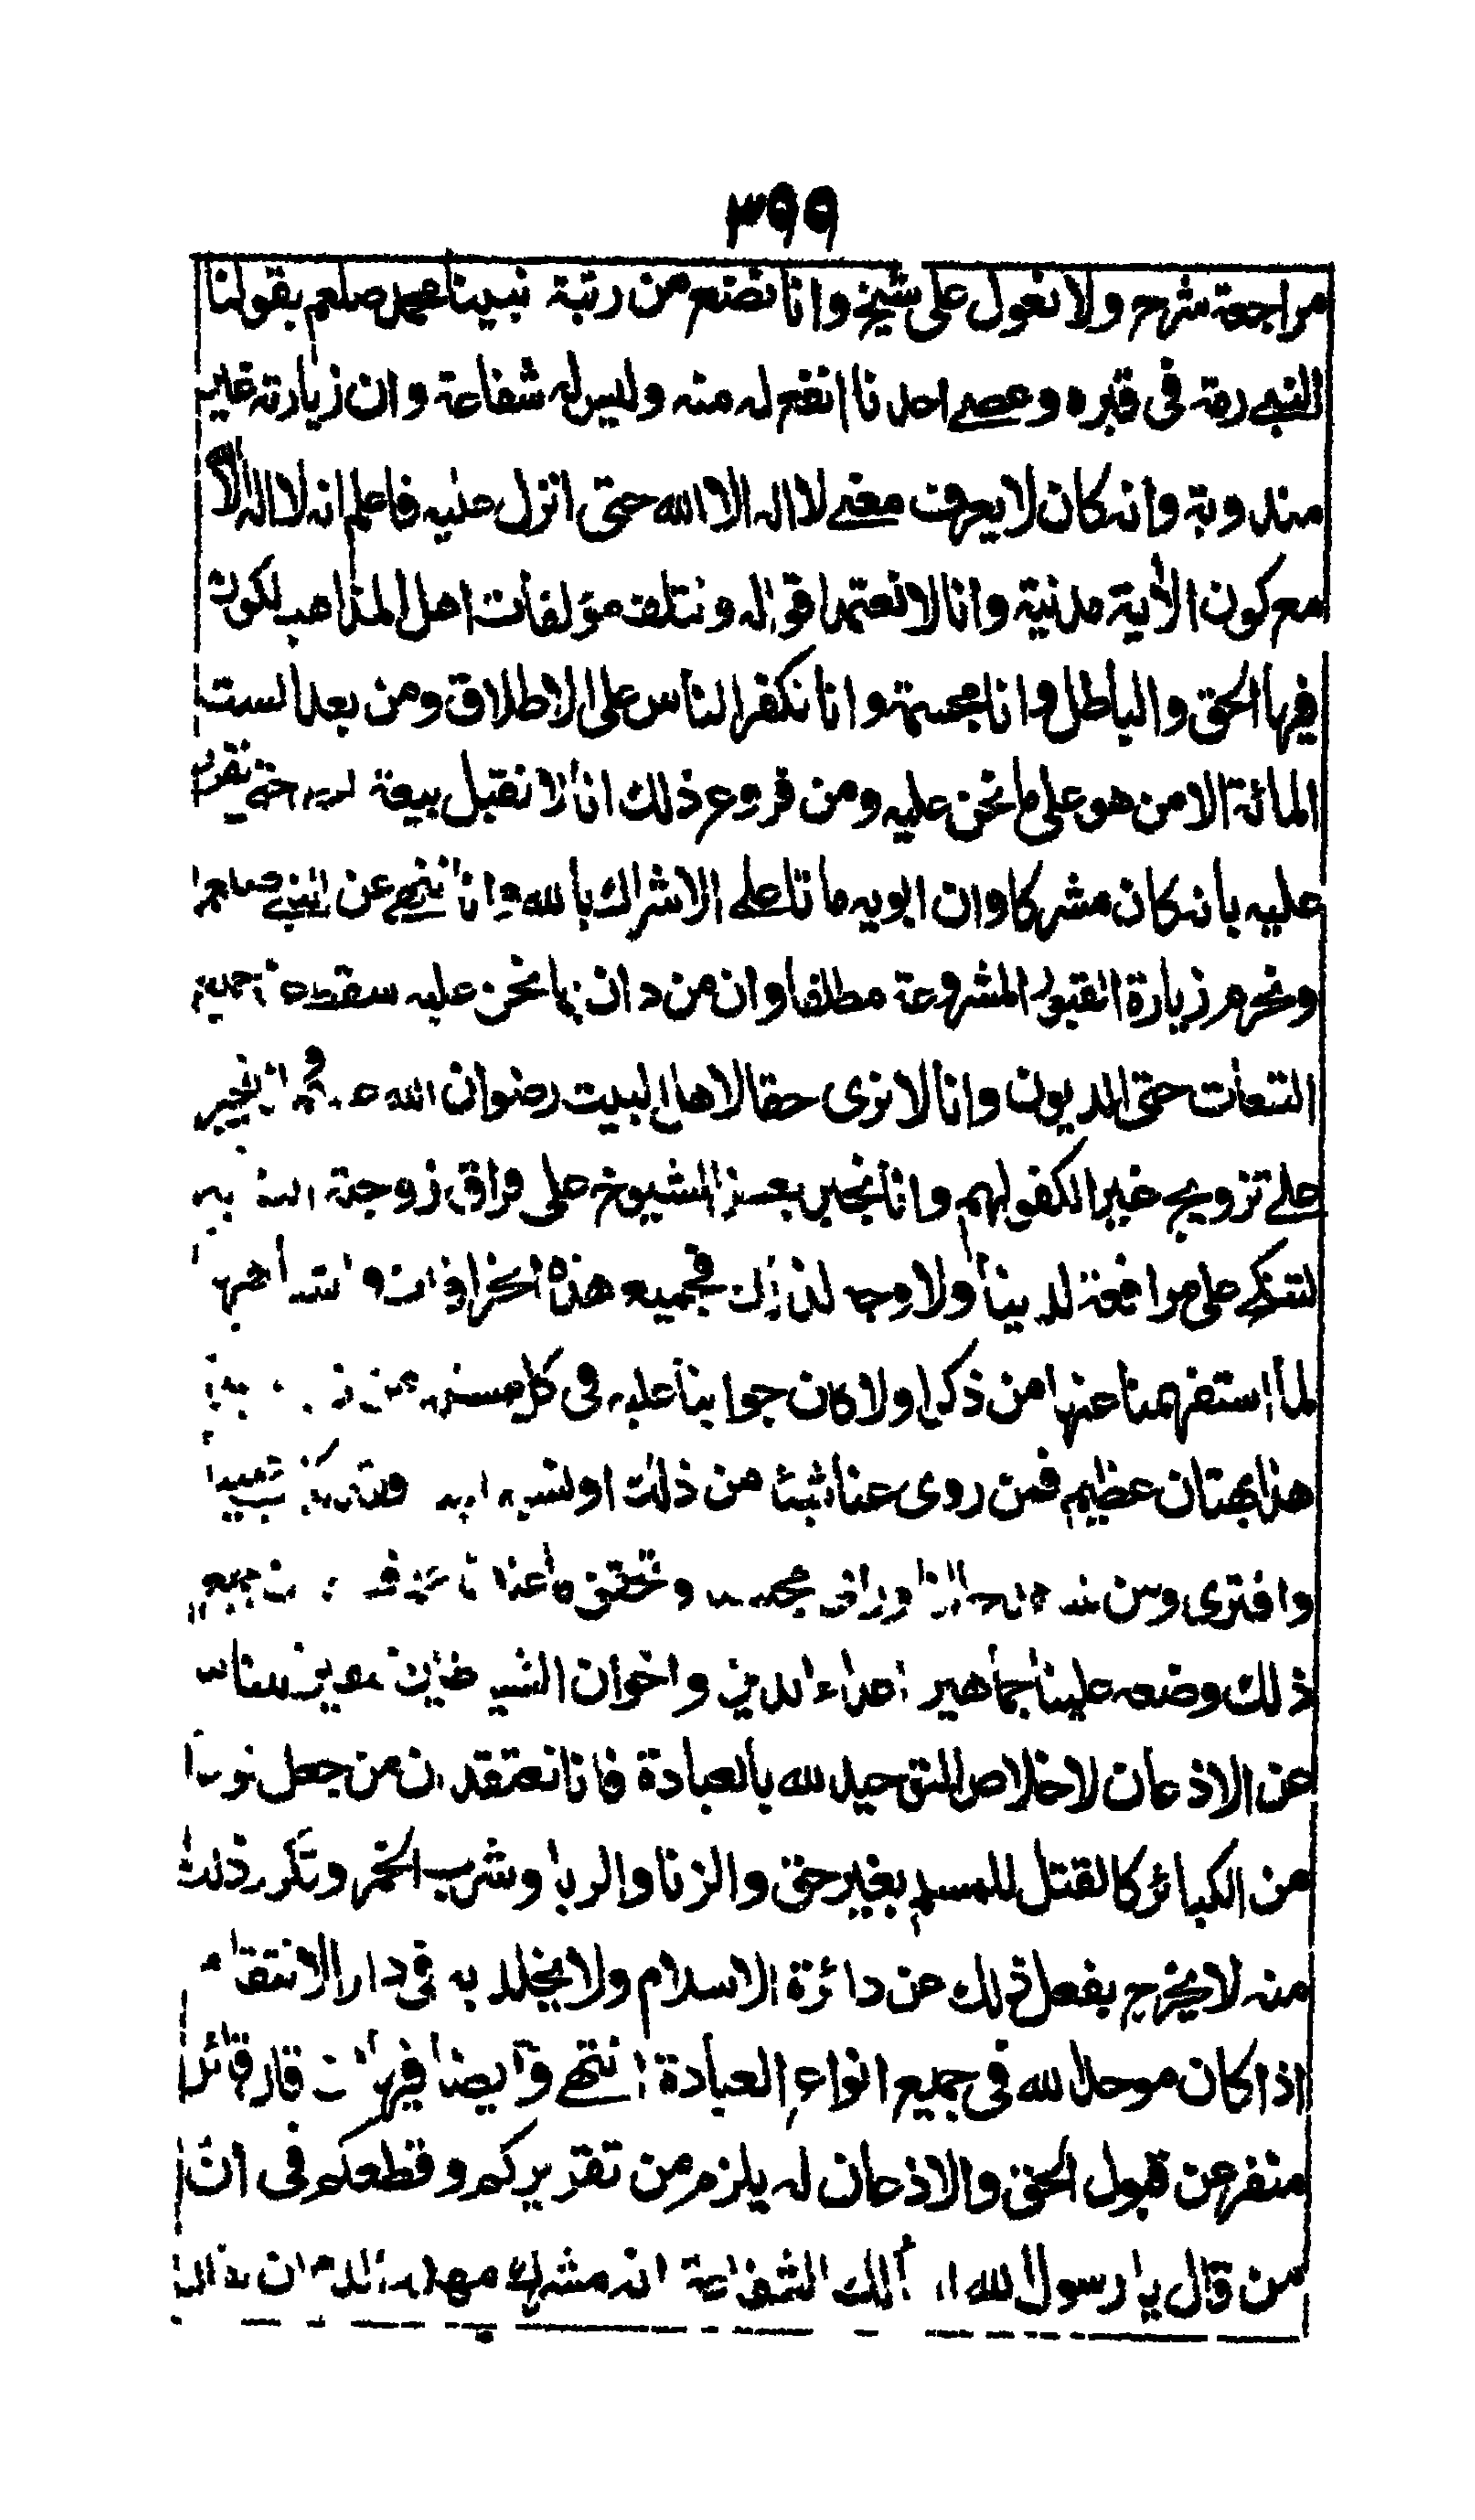 ٣٩٩
مراجعة شرح ولا نعول على شيخ وانا نضع من رتبة نبينا محمد صلعم بقولنا
النبي رمة في قبره وعصى احدنا انفع له منه وليس له شفاعة وان زيارته غير
مندوبة وانه كان لا يعرف معنى لا اله الا الله حتى انزل عليه فاعلم انه لا اله الا
مع كون الآية مدنية وانا لا نعتمد اقوال ونتلف مؤلفات اهل المذاهب لكون
فيها الحق والباطل وانا مجسمة وانا نكفر الناس على الاطلاق ومن بعد الست
المائة الا من هو على ما نحن عليه ومن فروع ذلك انا لا نقبل بيعة حتى نقرر
عليه بانه كان مشركا وان ابويه ماتا على الاشراك بالله وانا ننهى عن
ونحرم زيارة القبور المشروعة مطلقا وان من دان بما نحن عليه سقطت جميع
التبعات حتى الديون وانا لا نرى حقا لاهل البيت رضوان الله
على تزويج غير الكفو لهم وانا نجبر بعض الشيوخ على فراق زوجته
لتنكح على مرافعة لدينا ولا وجه لذلك فجميع هذه الخرافات
لما استفهمنا عنها من ذكر اولا كان جوابنا عليه في كل مسئلة من
هذا بهتان عظيم فمن روى عنا شيئا من ذلك او نسبه فقد كذب علينا
وافترى ومن وتحقق ما عندنا جميع
ذلك وضعه علينا جماهير اعداء الدين واخوان الشياطين
عن الاذعان لاخلاص التوحيد لله بالعبادة فانا نعتقد ان من جعل
من الكبائر كالقتل للمسلم بغير حق والزنا والربا وشرب الخمر وتكرر ذلك
منه لا يخرج بفعل ذلك عن دائرة الاسلام ولا يخلد به في دار الانتقام
اذا كان موحدا لله في جميع انواع العبادة انتهى وايضا فيها قال قائل
منفر عن قبول الحق والاذعان له يلزم من تقريركم وقطعكم في ان
من قال يا رسول الله اسألك الشفاعة انه مشرك مهدر الدم ان يقال